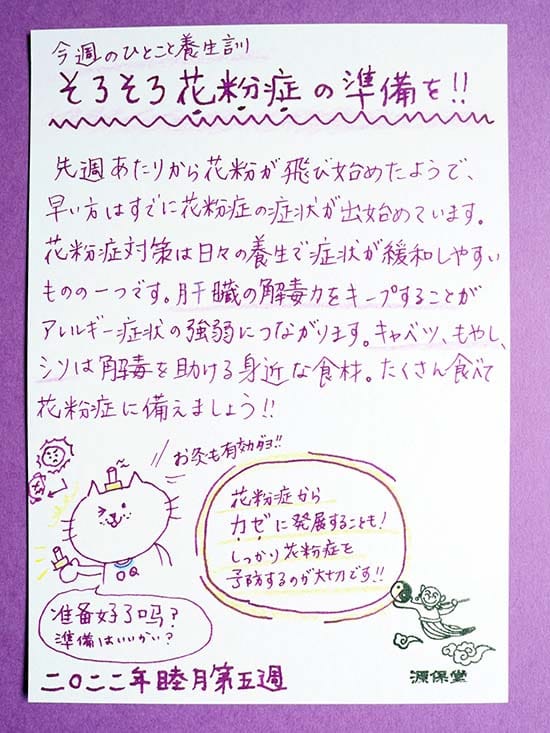 今週のひとこと養生訓
そろそろ花粉症の準備を!!
先週あたりから花粉が飛び始めたようで、
早い方はすでに花粉症の症状が出始めています。
花粉症対策は日々の養生で症状が緩和しやすい
ものの一つです。肝臓の解毒力をキープすることが
アレルギー症状の強弱につながります。キャベツ、もやし、
シソは解毒を助ける身近な食材。たくさん食べて
花粉症に備えましょう!!
お灸も有効ダヨ!!
花粉症から
カゼに発展することも!
しっかり花粉症を
予防するのが大切です!!
OQ
准备好了吗?
準備はいいかい?
二〇二二年睦月第五週
源保堂